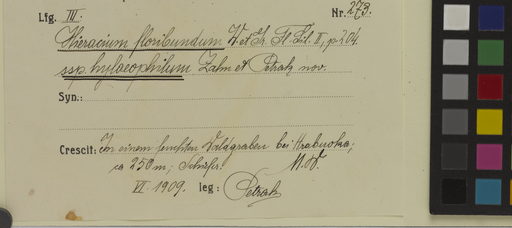 Lfg. III. Nr. 273.
Hieracium floribundum W. et Gr. Fl. Sil. II, p. 204.
ssp. hylaeophilum Zahn et Petrak nov.
Syn.:
Crescit: In einem feuchten Waldgraben bei Hrabuvka;
ca 250 m; Schiefer. M. W.
VI. 1909. leg: Petrak